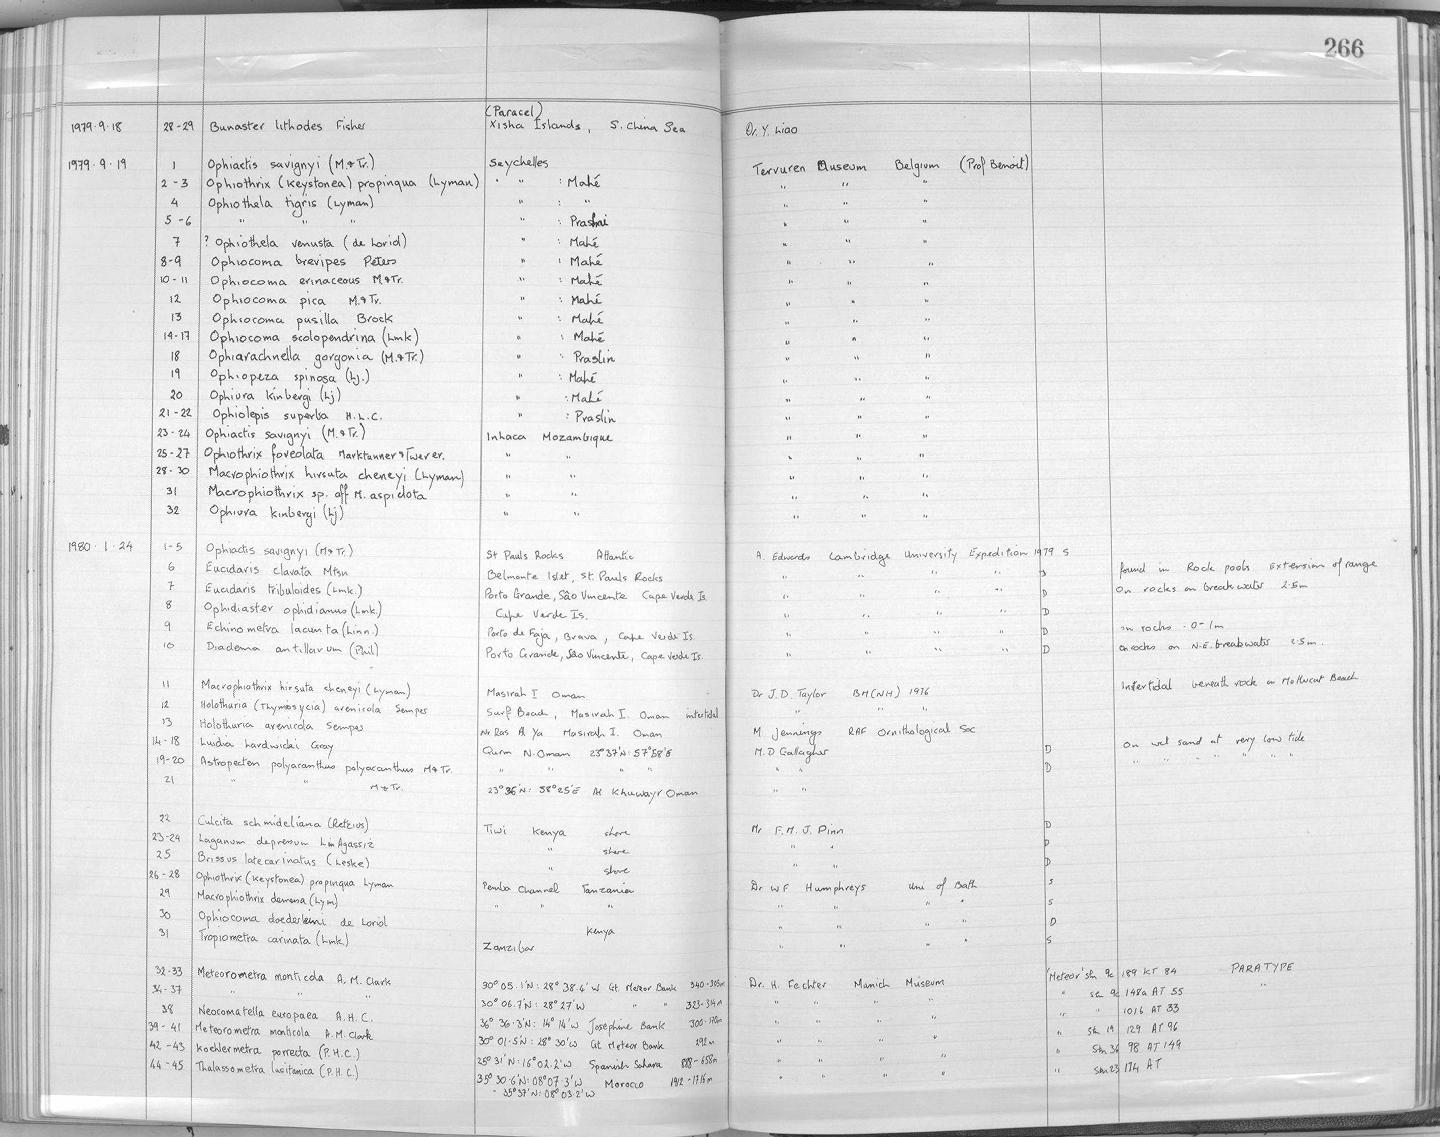 266
(Paracel)
1979.9.18 28-29 Bunaster lithodes Fisher Xisha Islands, S. China Sea Dr. Y. Liao
1979.9.19 1 Ophiactis savignyi (M.&Tr.) Seychelles Tervuren Museum Belgium (Prof Benoit)
2-3 Ophiothrix (Keystonea) propinqua (Lyman) " " : Mahé " " "
4 Ophiothela tigris (Lyman) " : " " " "
5-6 " " " " : " " "
7 ? Ophiothela venusta (de Loriol) " : Mahé " " "
8-9 Ophiocoma brevipes Peters " : Mahé " " "
10-11 Ophiocoma erinaceous M.&Tr. " : Mahé " " "
12 Ophiocoma pica M.&Tr. " : Mahé " " "
13 Ophiocoma pusilla Brock " : Mahé " " "
14-17 Ophiocoma scolopendrina (Lmk) " : Mahé " " "
18 Ophiarachnella gorgonia (M.&Tr.) " : Praslin " " "
19 Ophiopeza spinosa (Lj.) " : Mahé " " "
20 Ophiura kinbergi (Lj) " : Mahé " " "
21-22 Ophiolepis superba H.L.C. " : Praslin " " "
23-24 Ophiactis savignyi (M.&Tr.) Inhaca Mozambique " " "
25-27 Ophiothrix foveolata Marktanner & Turer. " " " " "
28-30 Macrophiothrix hirsuta cheneyi (Lyman) " " " " "
31 Macrophiothrix sp. aff M. aspidota " " " " "
32 Ophiura kinbergi (Lj) " " " " "
1980.1.24 1-5 Ophiactis savignyi (M&Tr.) St Pauls Rocks Atlantic A. Edwards Cambridge University Expedition 1979 S
6 Eucidaris clavata Mtsn Belmonte Islet, St. Pauls Rocks " " " " D found in Rock pools Extension of range
7 Eucidaris tribuloides (Lmk.) Porto Grande, São Vincente Cape Verde Is. " " " " D On rocks on breakwater 2.5m
8 Ophidiaster ophidianus (Lmk.) Cape Verde Is. " " " D
9 Echinometra lacunta (Linn.) Porto de Faja, Brava, Cape Verde Is. " " " " D on rocks . 0-1m
10 Diadema antillarum (Phil) Porto Grande, São Vincente, Cape Verde Is. " " " " D on rocks on N.E. breakwater 2.5m.
11 Macrophiothrix hirsuta cheneyi (Lyman) Masirah I Oman Dr J.D. Taylor BM(NH) 1976 Intertidal beneath rock on Beach
12 Holothuria (Thymosycia) arenicola Semper Surf Beach, Masirah I. Oman intertidal " "
13 Holothuria arenicola Semper Nr Ras Al Ya Masirah I. Oman M. Jennings RAF Ornithological Soc
14-18 Luidia hardwicki Gray Qurm N. Oman 23°37'N: 57°58'E M.D Gallagher D On wet sand at very low tide
19-20 Astropecten polyacanthus polyacanthus M&Tr. " " " " " " D " " " " " "
21 " " M&Tr. 23°36'N: 58°25'E Al Khuwayr Oman " "
22 Culcita schmideliana (Retzius) Tiwi Kenya shore Mr F.M.J. Pinn D
23-24 Laganum depressum L in Agassiz " shore " " D
25 Brissus latecarinatus (Leske) " shore " " D
26-28 Ophiothrix (Keystonea) propinqua Lyman Pemba Channel Tanzania Dr WF Humphreys Uni of Bath S
29 Macrophiothrix demessa (Lym) " " " " " " " S
30 Ophiocoma doederleini de Loriol Kenya " " " " D
31 Tropiometra carinata (Lmk) Zanzibar " " " " S
32-33 Meteorometra monticola A.M. Clark 30°05.1'N: 28°38.6'W Gt. Meteor Bank 340-305m Dr. H. Fechter Munich Museum 'Meteor' stn 9c 189 KT 84 PARATYPE
34-37 " " " 30°06.7'N: 28°27'W " " 323-314m " " " " stn 9c 148a AT 55 "
38 Neocomatella europaea A.H.C. 36°36.3'N: 14°14'W Josephine Bank " " " " " 1016 AT 33
39-41 Meteorometra monticola A.M. Clark 30°01.5'N: 28°30'W Gt Meteor Bank 292m " " " " Stn 19 129 AT 96
42-43 Koehlermetra porrecta (P.H.C.) 25°31'N: 16°02.2'W Spanish Sahara 888-658m " " " " Stn 36 98 AT 149
44-45 Thalassometra lusitanica (P.H.C.) 35°30.6'N: 08°07.3'W Morocco 1912-1716m " " " " Stn 23 174 AT
- 35°37'N: 08°03.2'W